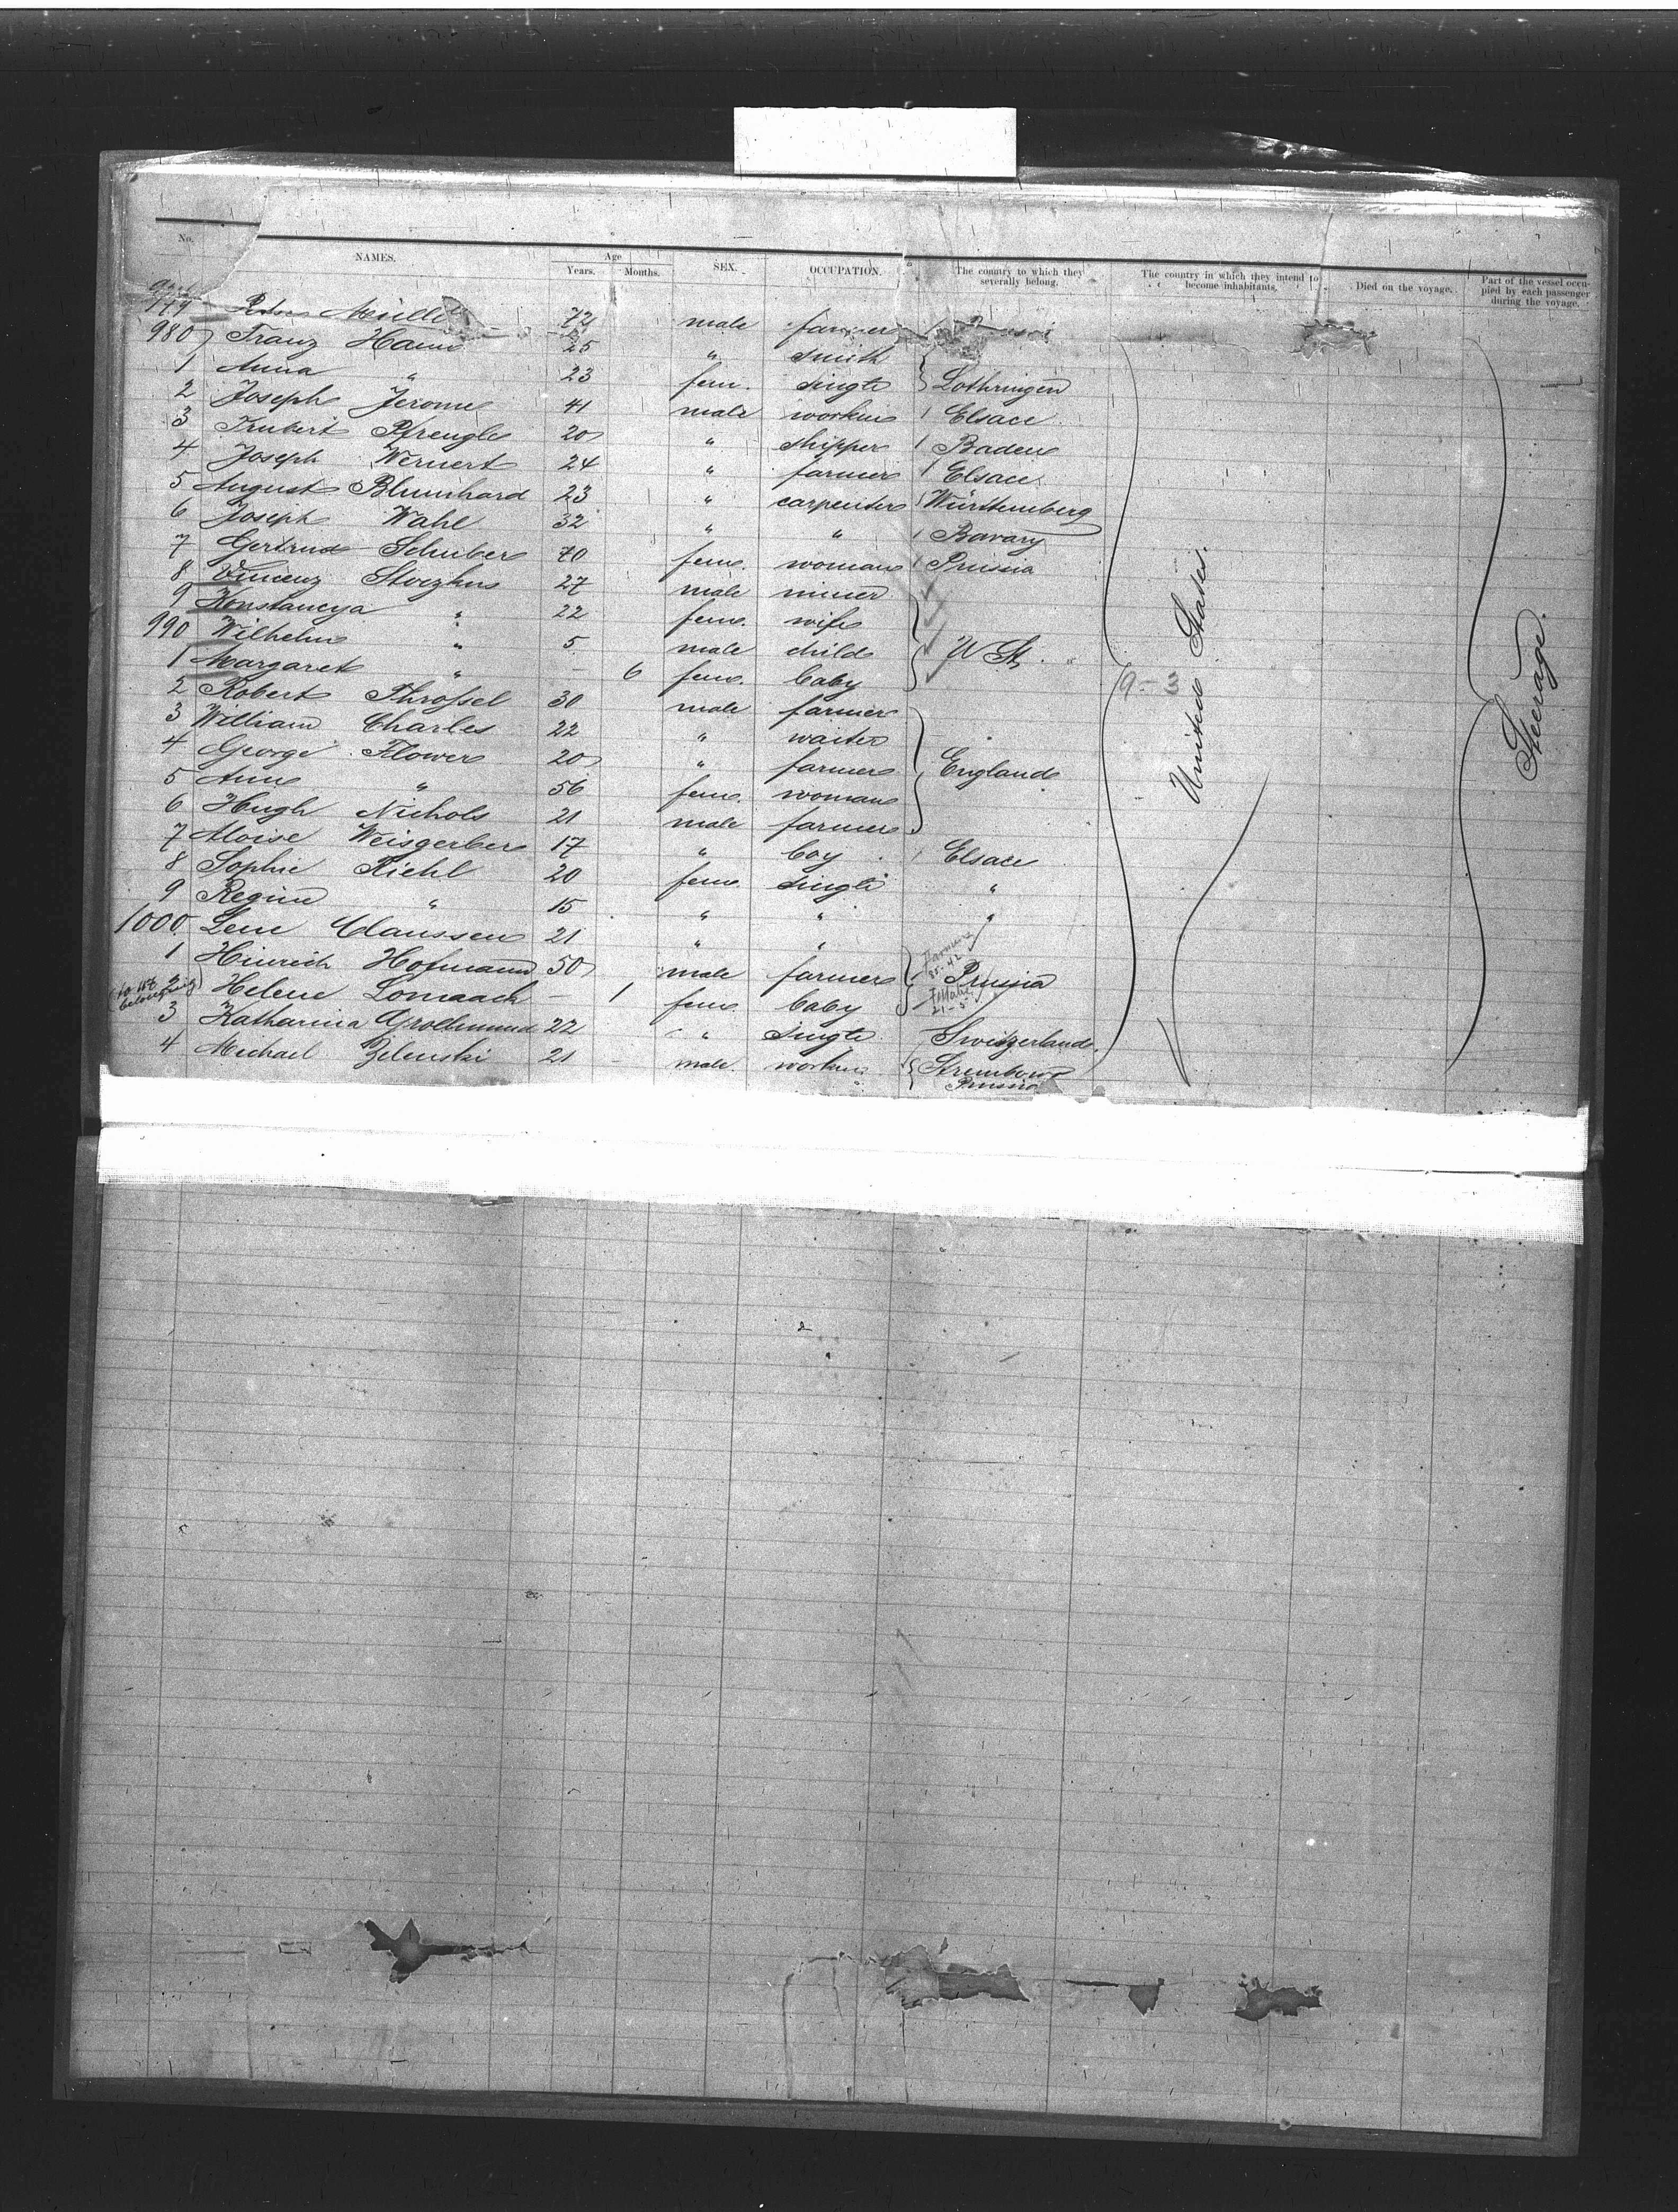 No. NAMES. Age Years. Months. SEX. OCCUPATION. The country to which they severally belong. The country in which they intend to become inhabitants. Died on the voyage. Part of the vessel occupied by each passenger during the voyage.
979 Müller 72 male farmer
980 Franz Hann 25 " smith
1 Anna " 23 fem. single } Lothringen
2 Joseph Jerome 41 male worker Elsace
3 Pfrengle 20 " shipper Baden
4 Joseph Wernert 24 " farmer Elsace
5 August Blumhard 23 " carpenter Württemberg
6 Joseph Wahl 32 " " Bavary
7 Gertrud Schuber 70 fem. woman Prussia
8 Vincenz 27 male miner
9 Konstancya " 22 fem. wife
990 Wilhelm " 5 male child } U St.
1 Margaret " - 6 fem. baby
2 Robert Throssel 30 male farmer
3 William Charles 22 " waiter
4 George Flower 20 " farmer } England
5 Ann " 56 fem. woman
6 Hugh Nichols 21 male farmer
7 Aloise Weisgerber 17 " boy Elsace
8 Sophie Riehl 20 fem. single "
9 Regine " 15 " " "
1000. Lene Claussen 21 " "
1 Hinrich Hofmann 50 male farmer } Prussia
2 Helene Lomaach - 1 fem. baby
3 Katharina Grollimund 22 " single Switzerland.
4 Michael Zelenski 21 - male. worker
Prussia
belonging
9-3
United States.
Steerage.